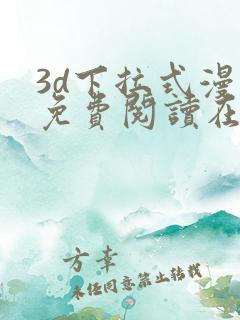 3d下拉式漫
免費閱讀在
方幸
未经同意禁止转载